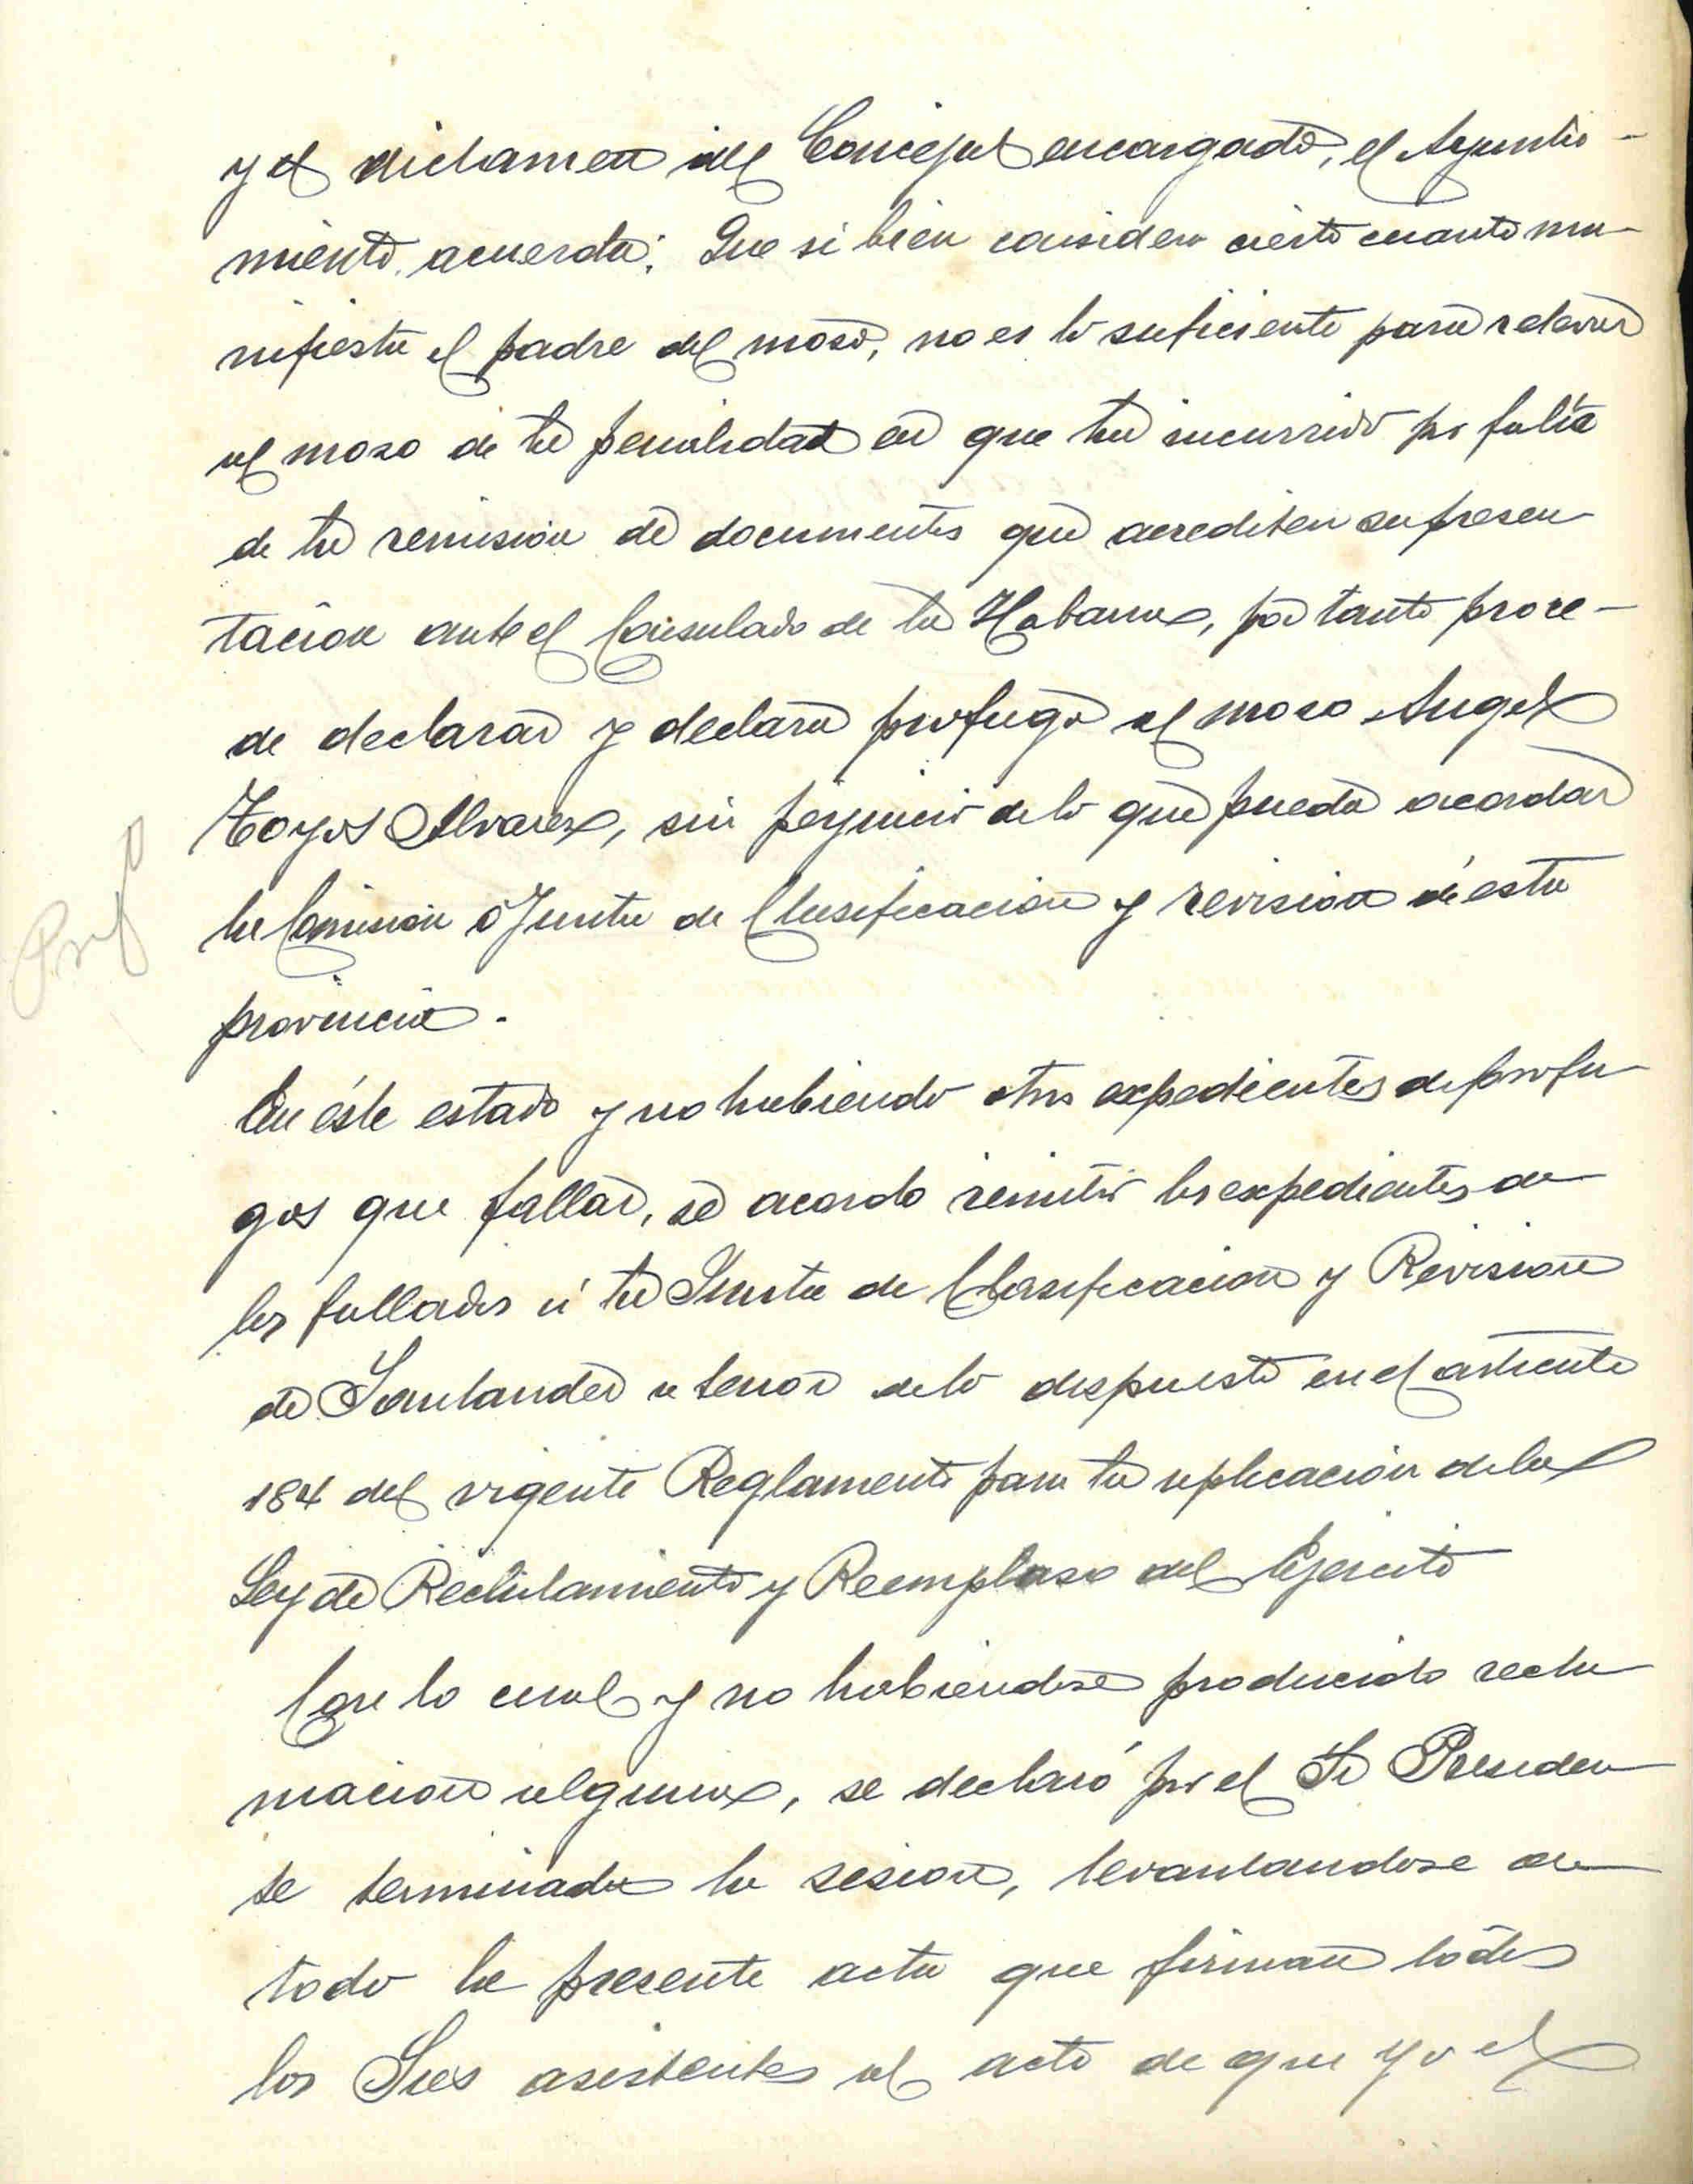 y el dictamen del Concejal encargado, el Ayunta-
miento acuerda: Que si bien considera cierto cuanto ma-
nifiesta el padre del moso, no es lo suficiente para relevar
al moso de la penalidad en que ha incurrido por falta
de la remision de documentos que acrediten su presen
tación ante el Consulado de la Habana, por tanto proce-
de declarar y declara profugo al moso Angel
Hoyos Alvarez, sin perjuicio de lo que pueda acordar
la Comision o Junta de Clasificacion y revision de esta
provincia.
Prof
En éste estado y no habiendo otros expedientes de profu
gos que fallar, se acordo remitir los expedientes de
los fallados á la Junta de Clasificacion y Revision
de Santander a tenor de lo dispuesto en el articulo
184 del vigente Reglamento para la aplicación de la
Ley de Reclutamiento y Reemplaso del Ejercito
Con lo cual y no habiendose producido recla
macion alguna, se declaró por el Sr Presiden
te terminada la sesion, levantandose de
todo la presente acta que firman todos
los Sres asistentes al acto de que yo el